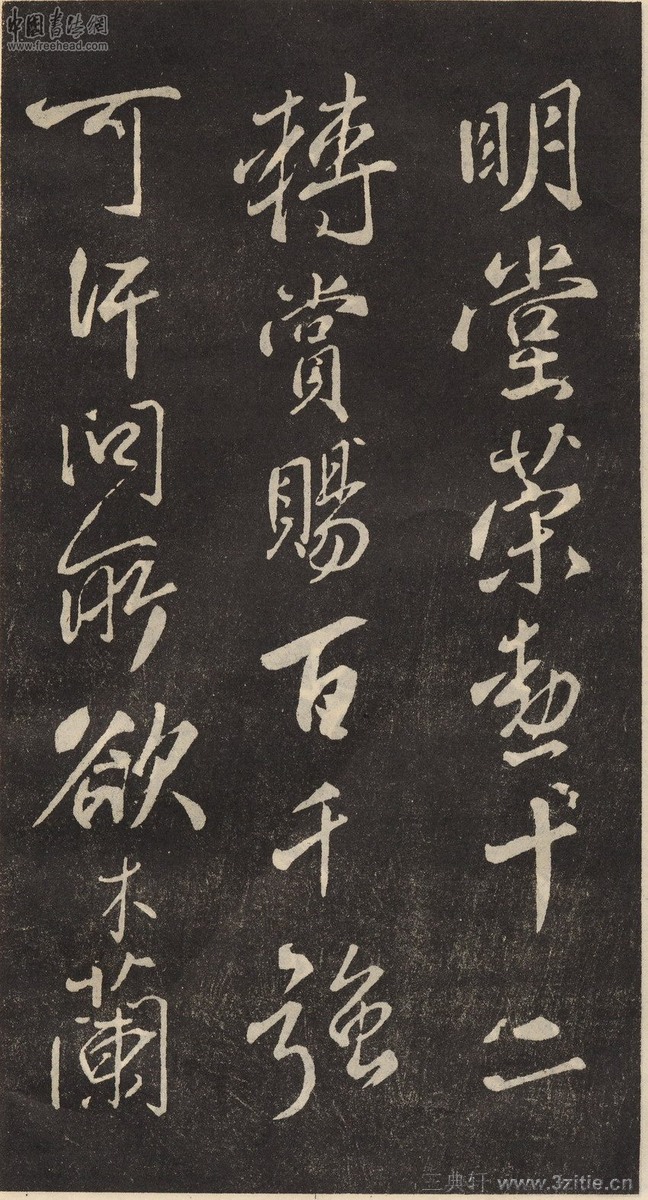 中国书法网
www.freehead.com
明堂策勳十二
轉賞賜百千強
可汗問所欲木蘭
三典轩 www.3zitie.cn